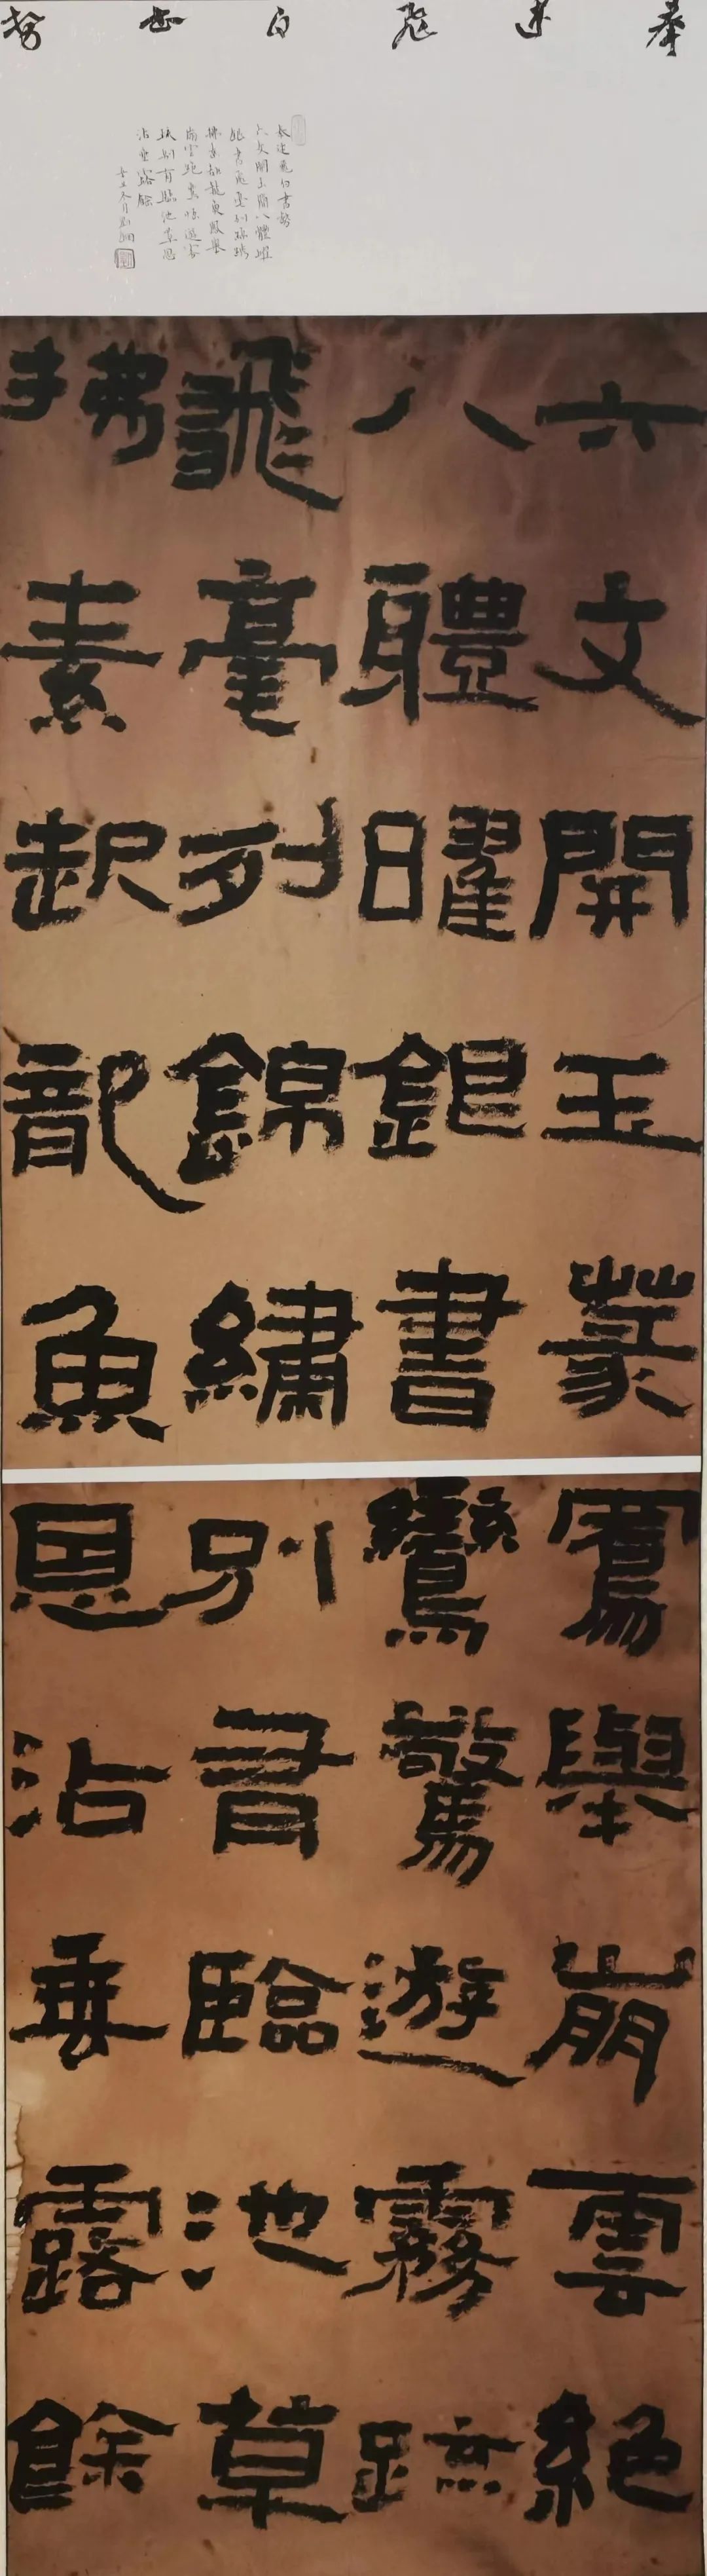 奉述飛白書勢
奉述飛白書勢
六文開玉篆八體曜
銀書飛毫列錦繡
拂素起龍魚鳳舉
崩雲絕鸞驚遊霧
疎別有臨池草恩
沾垂露餘
辛丑冬月劉
六文開玉篆
八體曜銀書
飛毫列錦繡
拂素起龍魚
鳳舉崩雲絕
鸞驚遊霧疎
別有臨池草
恩沾垂露餘